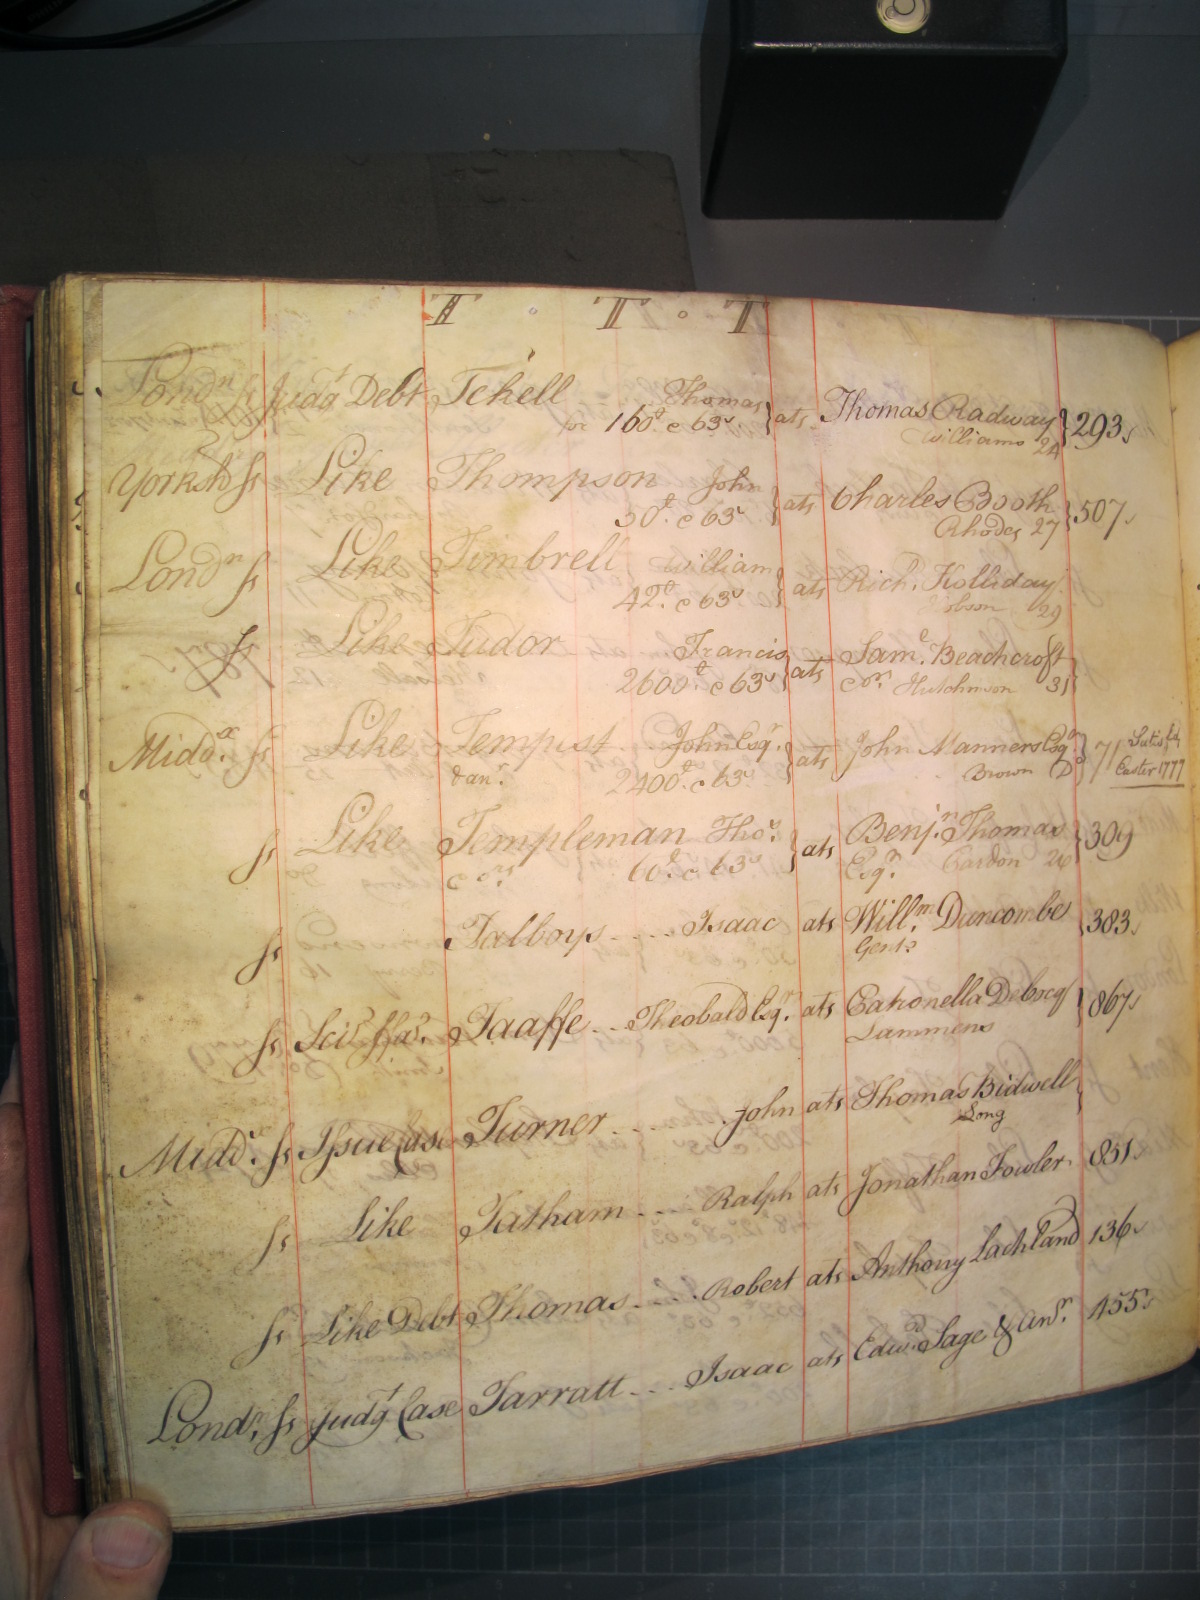 T · T · T
Lond:n ss Judgt Debt Tekell .... Thomas } ats Thomas Radway } 293s
for 160£ & 63s Williams 24
Yorksh ss Like Thompson John } ats Charles Booth } 507s
30£ & 63s Rhodes 27
Lond:n ss Like Timbrell William } ats Rich:d Holliday
42£ & 63s 29
ss Like Tudor Francis } ats Sam:l Beachcroft }
2600£ & 63s Hutchinson 31
Midd:x ss Like Tempest .. John Esq:r } ats John Manners Esq:r } 71 Satisfd
& an:r 2400£ & 63s Brown D Easter 1777
ss Like Templeman Tho:s } ats Benj:n Thomas } 309
60£ & 63s Esq:r Cardon 26
ss Talboys .... Isaac ats Will:m Duncombe } 383s
Gent:
ss Sci: ffa:s Taaffe .. Theobald Esq:r ats } 867s
Lammens
Midd:x ss Issue Case Turner .... John ats Thomas Bidwell }
Long
ss Like Tatham .... Ralph ats Jonathan Fowler 851s
ss Like Debt Thomas .... Robert ats Anthony Lachland 136s
Lond:n ss Judgt Case Tarratt ... Isaac ats Edw:d Sage & an:r 455s